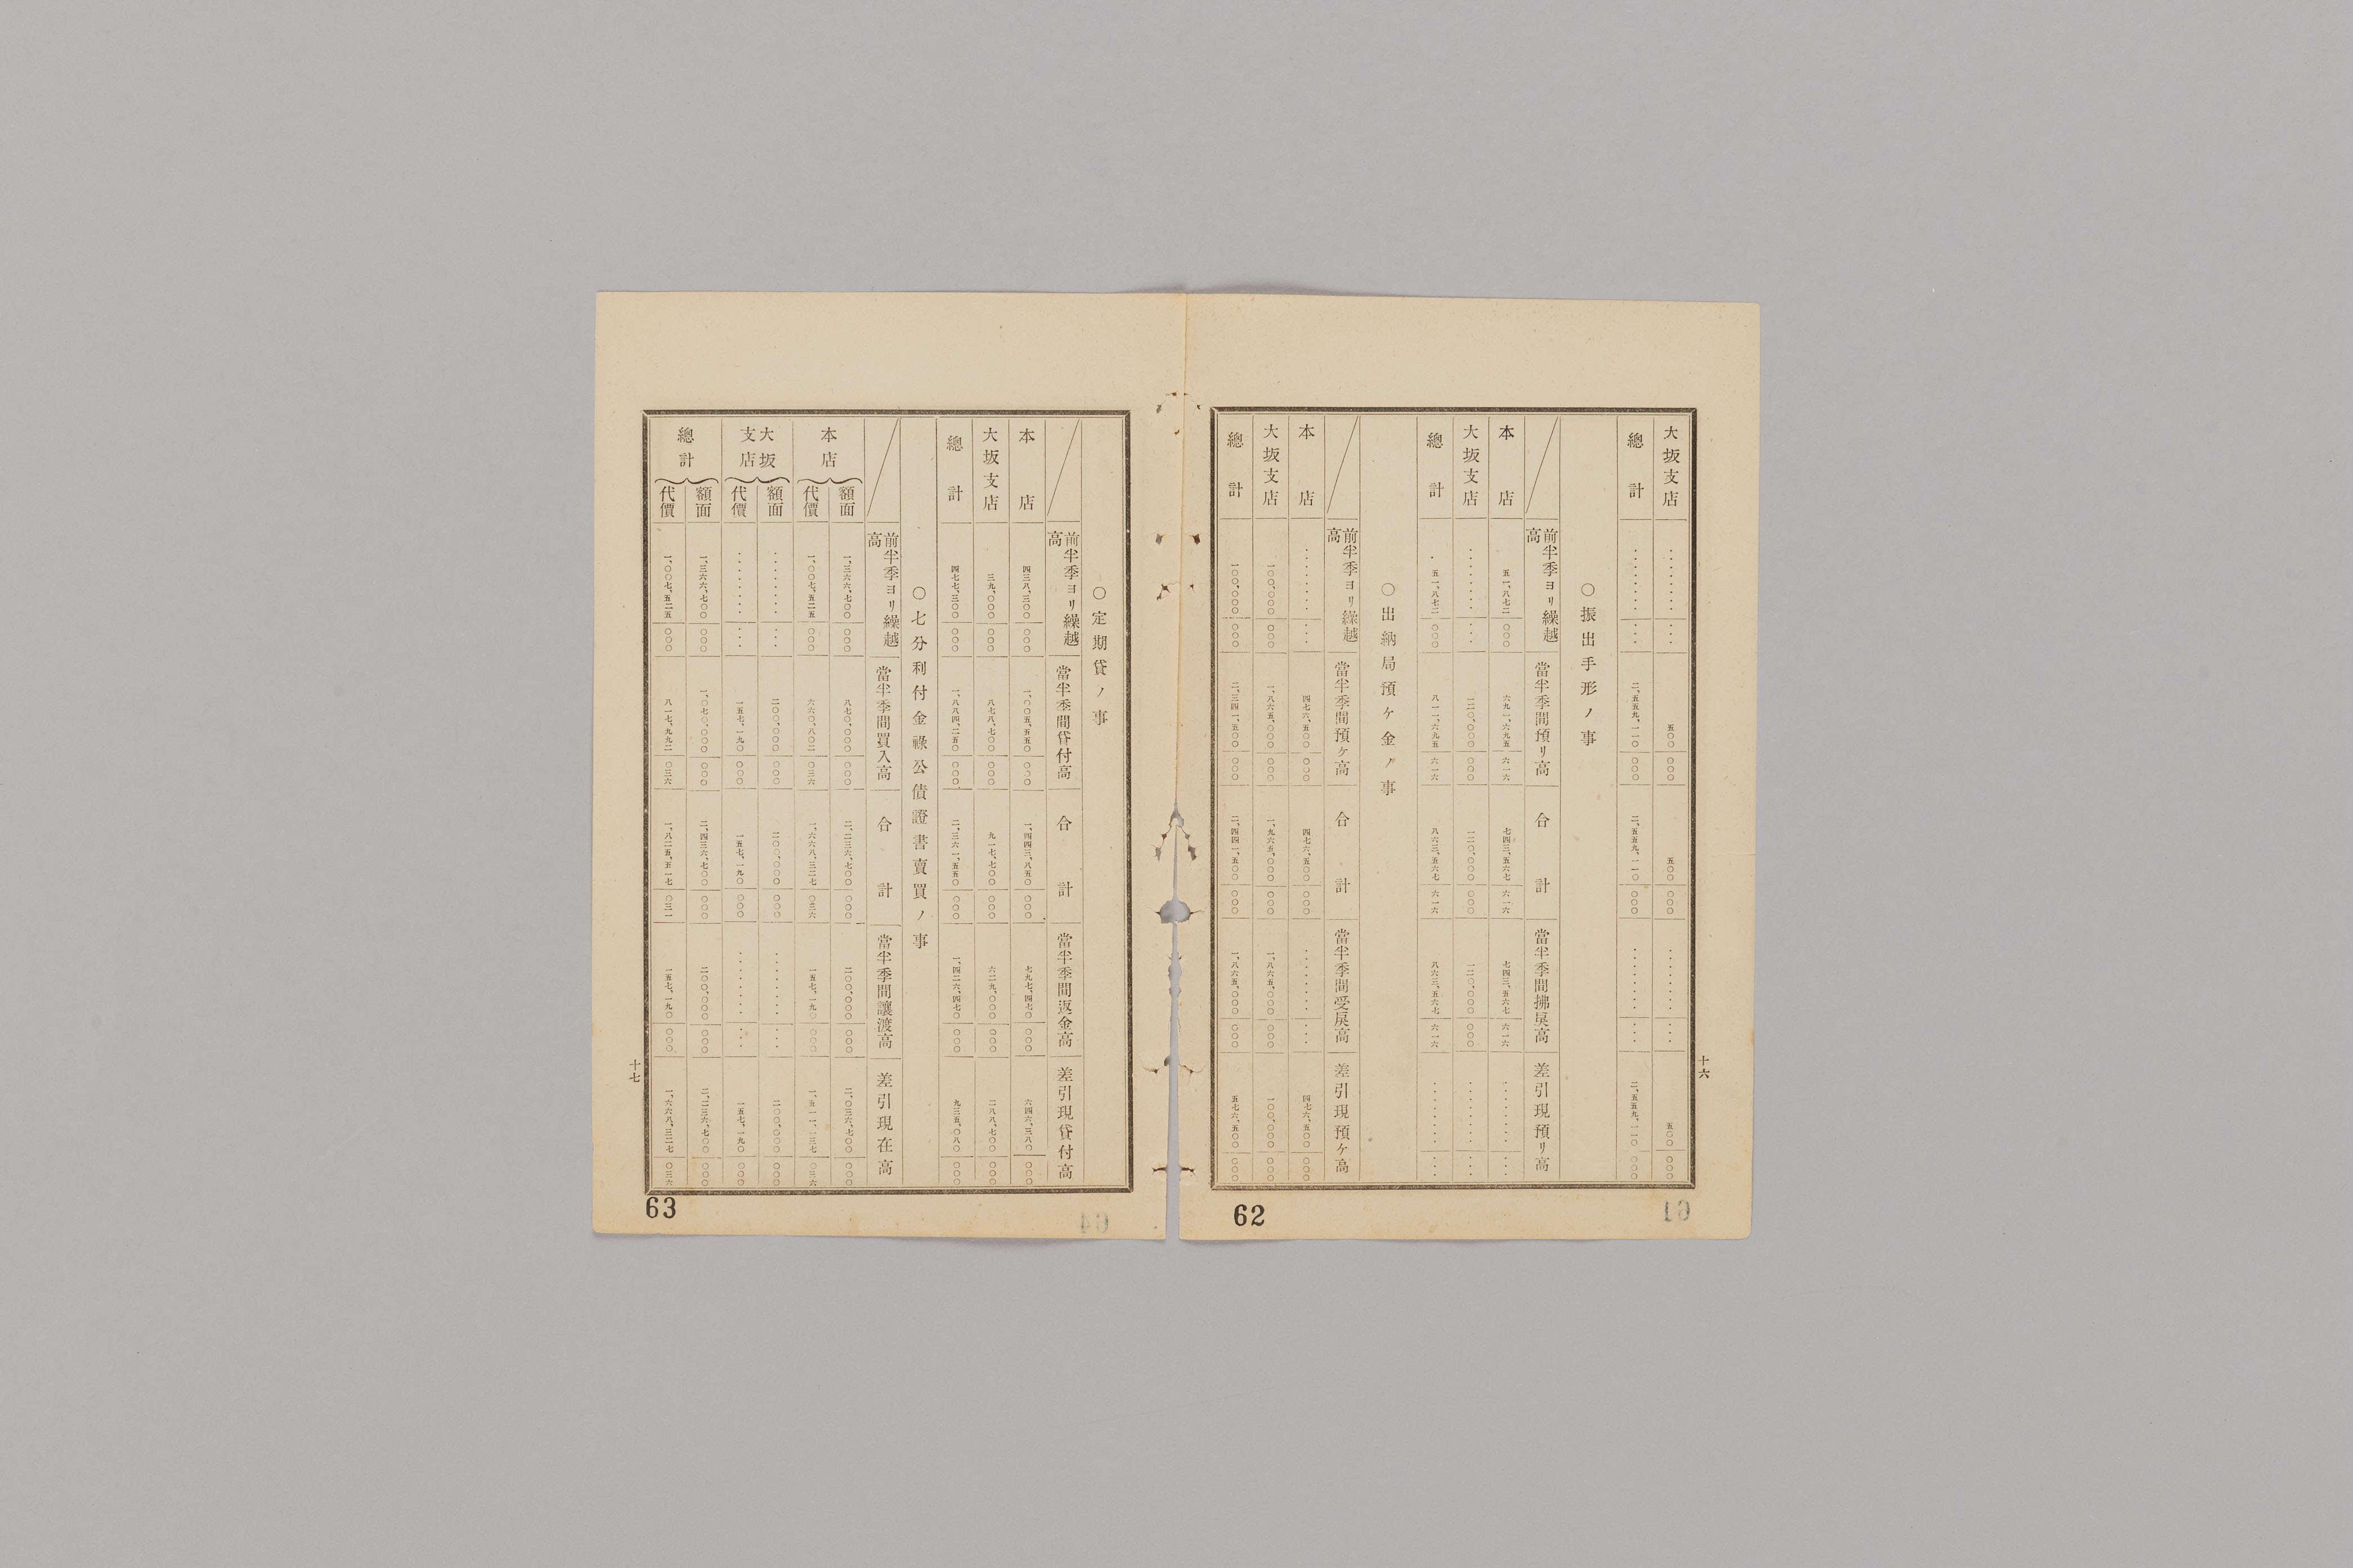 十六
大坂支店 ・・・・・・・・ ・・・ 五〇〇 〇〇〇 五〇〇 〇〇〇 ・・・・・・・・ ・・・ 五〇〇 〇〇〇
總計 ・・・・・・・・ ・・・ 二、五五九、一一〇 〇〇〇 二、五五九、一一〇 〇〇〇 ・・・・・・・・ ・・・ 二、五五九、一一〇 〇〇〇
〇振出手形ノ事
前半季ヨリ繰越高 當半季間預リ高 合計 當半季間拂戾高 差引現預リ高
本店 五一、八七二 〇〇〇 六九一、六九五 六一六 七四三、五六七 六一六 七四三、五六七 六一六 ・・・・・・・・ ・・・
大坂支店 ・・・・・・・・ ・・・ 一二〇、〇〇〇 〇〇〇 一二〇、〇〇〇 〇〇〇 一二〇、〇〇〇 〇〇〇 ・・・・・・・・ ・・・
總計 五一、八七二 〇〇〇 八一一、六九五 六一六 八六三、五六七 六一六 八六三、五六七 六一六 ・・・・・・・・ ・・・
〇出納局預ケ金ノ事
前半季ヨリ繰越高 當半季間預ケ高 合計 當半季間受戾高 差引現預ケ高
本店 ・・・・・・・・ ・・・ 四七六、五〇〇 〇〇〇 四七六、五〇〇 〇〇〇 ・・・・・・・・ ・・・ 四七六、五〇〇 〇〇〇
大坂支店 一〇〇、〇〇〇 〇〇〇 一、八六五、〇〇〇 〇〇〇 一、九六五、〇〇〇 〇〇〇 一、八六五、〇〇〇 〇〇〇 一〇〇、〇〇〇 〇〇〇
總計 一〇〇、〇〇〇 〇〇〇 二、三四一、五〇〇 〇〇〇 二、四四一、五〇〇 〇〇〇 一、八六五、〇〇〇 〇〇〇 五七六、五〇〇 〇〇〇
62
61
〇定期貸ノ事
前半季ヨリ繰越高 當半季間貸付高 合計 當半季間返金高 差引現貸付高
本店 四三八、三〇〇 〇〇〇 一、〇〇五、五五〇 〇〇〇 一、四四三、八五〇 〇〇〇 七九七、四七〇 〇〇〇 六四六、三八〇 〇〇〇
大坂支店 三九、〇〇〇 〇〇〇 八七八、七〇〇 〇〇〇 九一七、七〇〇 〇〇〇 六二九、〇〇〇 〇〇〇 二八八、七〇〇 〇〇〇
總計 四七七、三〇〇 〇〇〇 一、八八四、二五〇 〇〇〇 二、三六一、五五〇 〇〇〇 一、四二六、四七〇 〇〇〇 九三五、〇八〇 〇〇〇
〇七分利付金祿公債證書賣買ノ事
前半季ヨリ繰越高 當半季間買入高 合計 當半季間讓渡高 差引現在高
本店 額面 一、三六六、七〇〇 〇〇〇 八七〇、〇〇〇 〇〇〇 二、二三六、七〇〇 〇〇〇 二〇〇、〇〇〇 〇〇〇 二、〇三六、七〇〇 〇〇〇
代價 一、〇〇七、五二五 〇〇〇 六六〇、八〇二 〇三六 一、六六八、三二七 〇三六 一五七、一九〇 〇〇〇 一、五一一、一三七 〇三六
大坂支店 額面 ・・・・・・・・ ・・・ 二〇〇、〇〇〇 〇〇〇 二〇〇、〇〇〇 〇〇〇 ・・・・・・・・ ・・・ 二〇〇、〇〇〇 〇〇〇
代價 ・・・・・・・・ ・・・ 一五七、一九〇 〇〇〇 一五七、一九〇 〇〇〇 ・・・・・・・・ ・・・ 一五七、一九〇 〇〇〇
總計 額面 一、三六六、七〇〇 〇〇〇 一、〇七〇、〇〇〇 〇〇〇 二、四三六、七〇〇 〇〇〇 二〇〇、〇〇〇 〇〇〇 二、二三六、七〇〇 〇〇〇
代價 一、〇〇七、五二五 〇〇〇 八一七、九九二 〇三六 一、八二五、五一七 〇三一 一五七、一九〇 〇〇〇 一、六六八、三二七 〇三六
十七
63
64